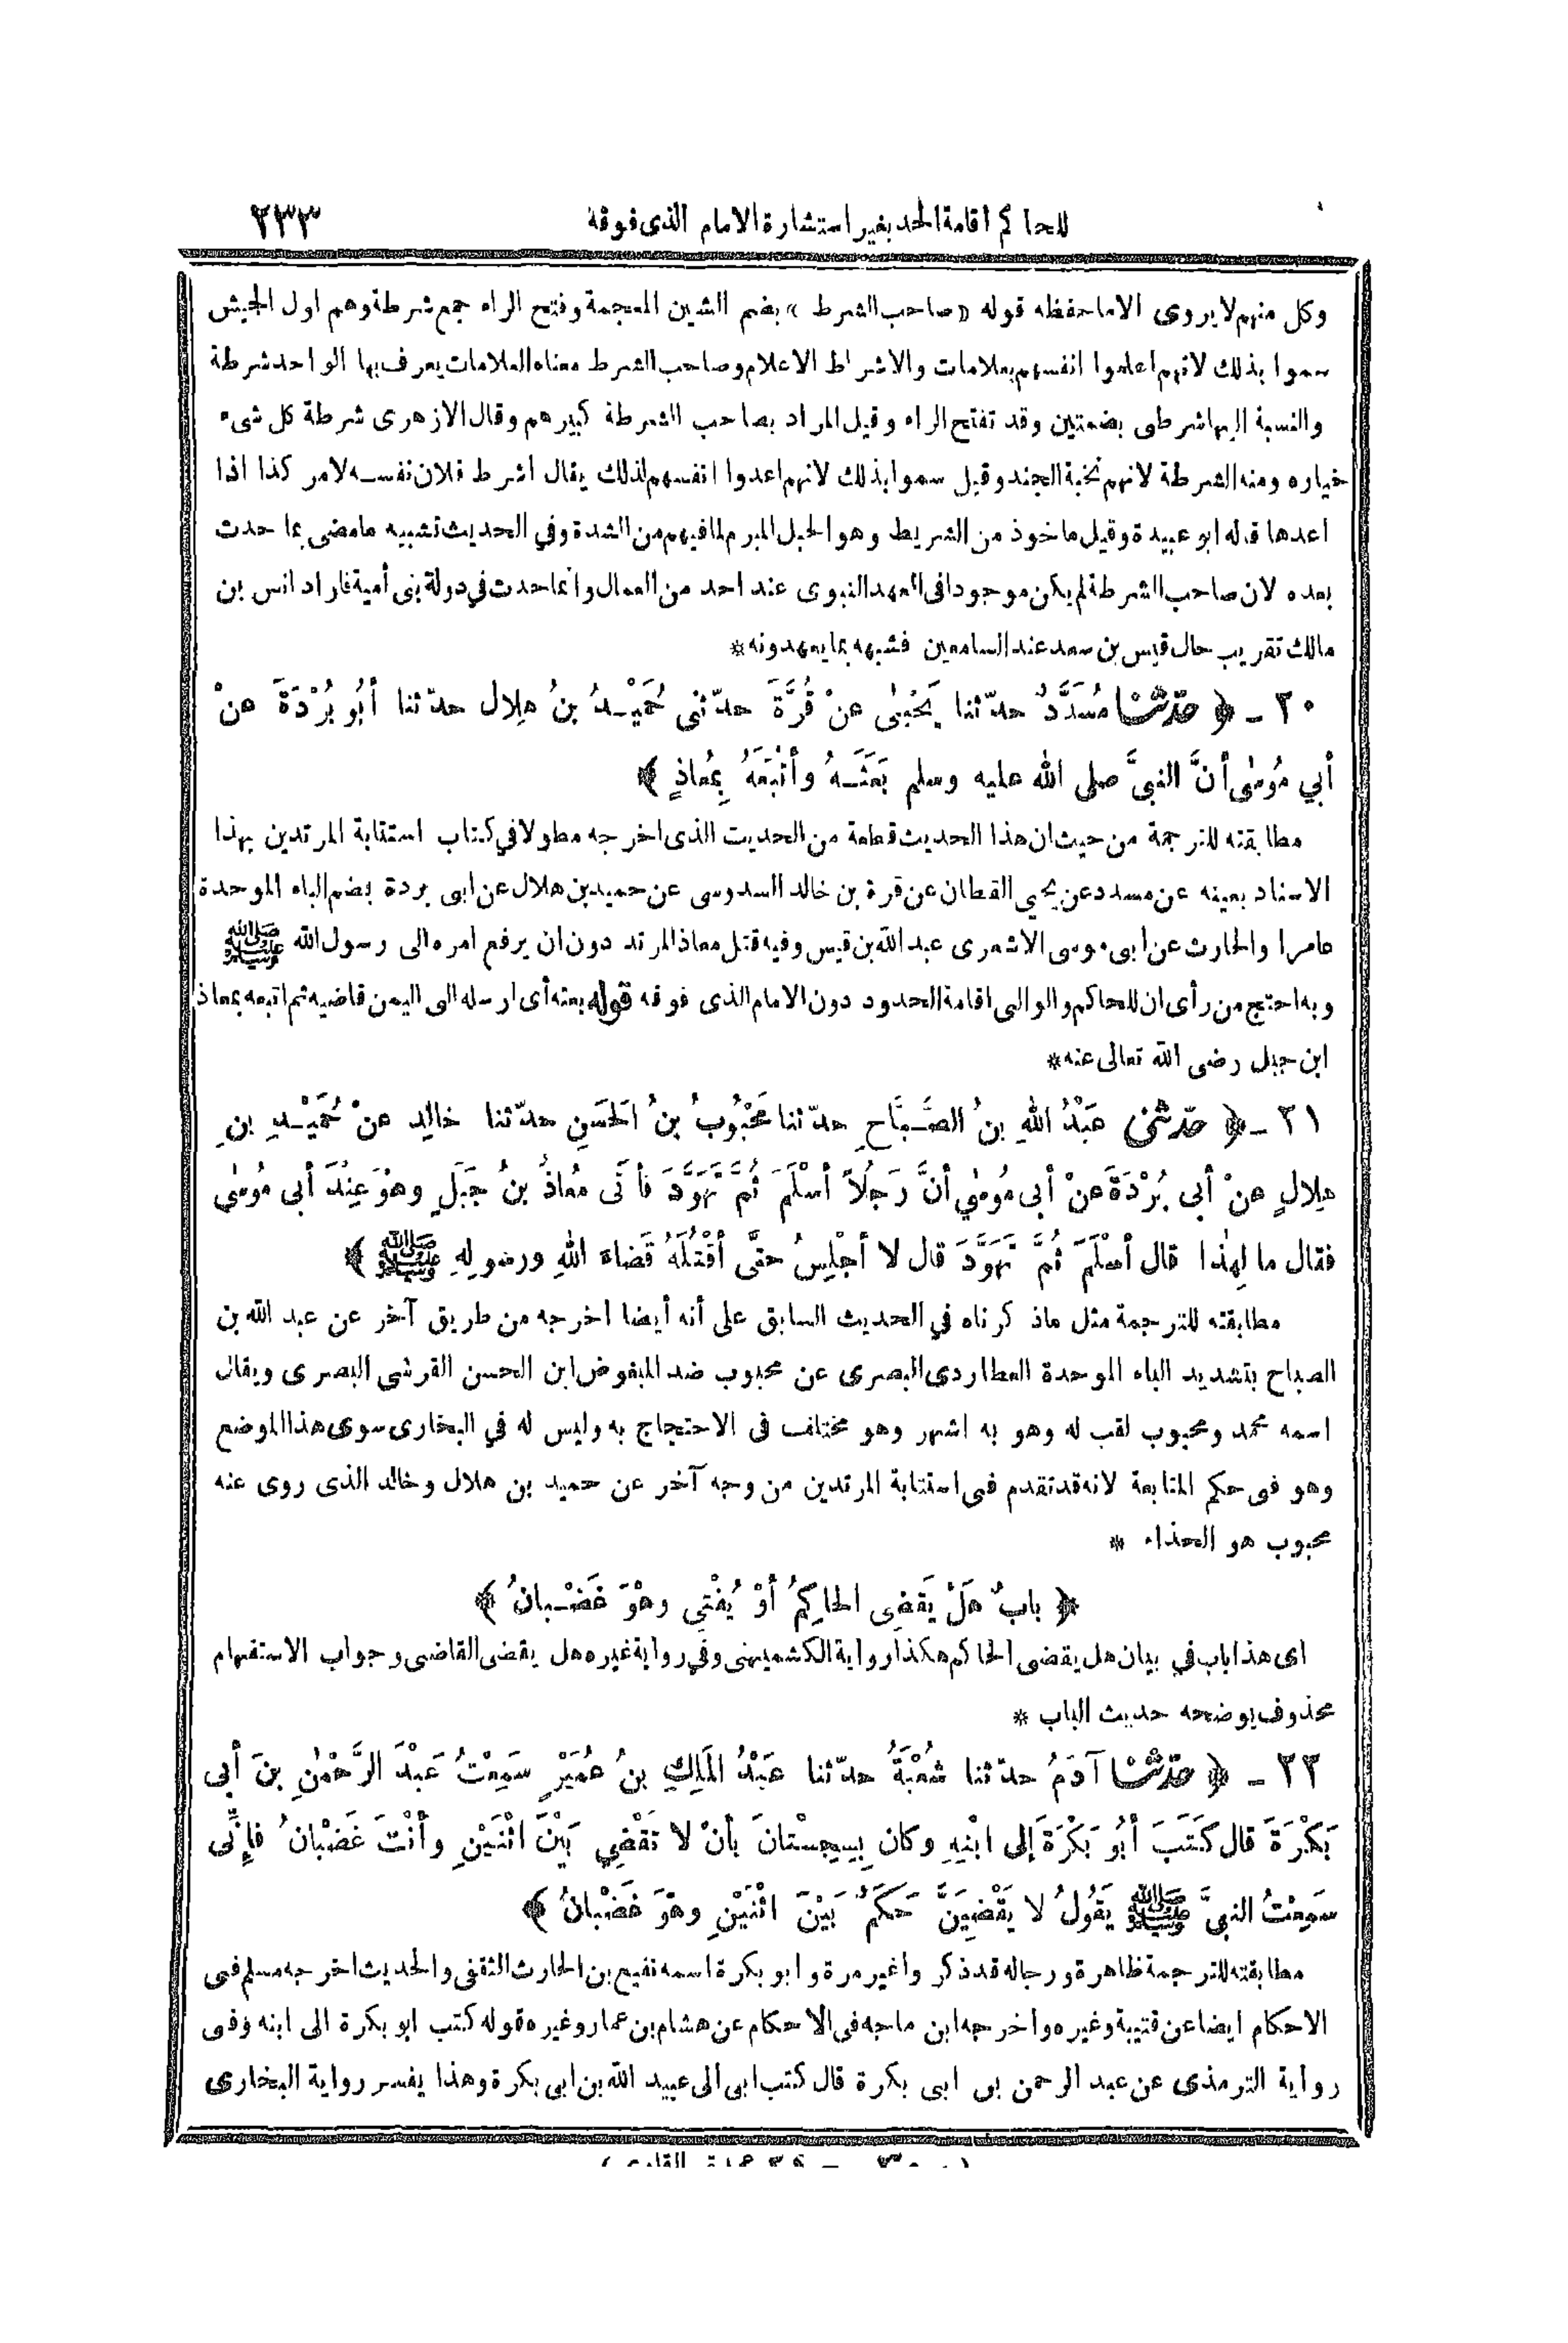 للحاكم اقامة الحد بغير استشارة الامام الذى فوقه ٢٣٣
وكل منهم لا يروى الا ما حفظه قوله «صاحب الشرط» بضم الشين المعجمة وفتح الراء جمع شرطة وهم اول الجيش
سموا بذلك لانهم اعلموا انفسهم بعلامات والاشراط الاعلام وصاحب الشرط معناه العلامات يعرف بها الواحد شرطة
والنسبة اليها شرطى بضمتين وقد تفتح الراء وقيل المراد بصاحب الشرطة كبيرهم وقال الازهرى شرطة كل شىء
خياره ومنه الشرطة لانهم نخبة الجند وقيل سموا بذلك لانهم اعدوا انفسهم لذلك يقال اشرط فلان نفسه لامر كذا اذا
اعدها قاله ابو عبيدة وقيل ماخوذ من الشريط وهو الحبل المبرم لما فيهم من الشدة وفي الحديث تشبيه مامضى بما حدث
بعده لان صاحب الشرطة لم يكن موجودا فى العهد النبوى عند احد من العمال وانما حدث في دولة بنى أمية فاراد انس بن
مالك تقريب حال قيس بن سعد عند السامعين فشبهه بما يعهدونه *
٢٠ - ﴿ حدّثنا مُسَدَّدٌ حدّثنا يَحْيىٰ عنْ قُرَّةَ حدّثنى حُمَيْدُ بنُ هِلال حدّثنا أبُو بُرْدَةَ عنْ
أبي مُوسٰى أنَّ النبىَّ صلى الله عليه وسلم بَعَثَهُ وأتْبَعَهُ بِمُعاذٍ ﴾
مطابقته للترجمة من حيث ان هذا الحديث قطعة من الحديث الذى اخرجه مطولا في كتاب استتابة المرتدين بهذا
الاسناد بعينه عن مسدد عن يحيي القطان عن قرة بن خالد السدوسى عن حميد بن هلال عن ابى بردة بضم الباء الموحدة
عامرا والحارث عن ابى موسى الاشعرى عبد الله بن قيس وفيه قتل معاذ المرتد دون ان يرفع امره الى رسول الله ﷺ
وبه احتج من رأى ان للحاكم والوالى اقامة الحدود دون الامام الذى فوقه قوله بعثه أى ارسله الى اليمن قاضيه ثم اتبعه بمعاذ
ابن جبل رضى الله تعالى عنه *
٢١ - ﴿ حدّثنى عَبْدُ اللهِ بنُ الصَّبَّاحِ حدّثنا مَحْبُوبُ بنُ الحَسَنِ حدّثنا خالِد عنْ حُمَيْدِ بنِ
هِلالٍ عنْ أبى بُرْدَةَ عنْ أبى مُوسٰي أنَّ رَجُلاً أسْلَمَ ثُمَّ تَهَوَّدَ فأتَى مُعاذُ بنُ جَبَلٍ وهْوَ عِنْدَ أبى مُوسٰى
فقال ما لِهٰذا قال أسْلَمَ ثُمَّ تَهَوَّدَ قال لا أجْلِسُ حتَّى أقْتُلَهُ قَضاءَ اللهِ ورسولِهِ ﷺ ﴾
مطابقته للترجمة مثل ماذكرناه في الحديث السابق على أنه أيضا اخرجه من طريق آخر عن عبد الله بن
الصباح بتشديد الباء الموحدة العطاردى البصرى عن محبوب ضد المبغوض ابن الحسن القرشى البصرى ويقال
اسمه محمد ومحبوب لقب له وهو به اشهر وهو مختلف فى الاحتجاج به وليس له في البخارى سوى هذا الموضع
وهو فى حكم المتابعة لانه قد تقدم فى استتابة المرتدين من وجه آخر عن حميد بن هلال وخالد الذى روى عنه
محبوب هو الحذاء *
﴿ بابٌ هَلْ يَقضِى الحاكِمُ أوْ يُفْتِى وهْوَ غَضْبانُ ﴾
اى هذا باب في بيان هل يقضى الحاكم هكذا رواية الكشميهنى وفي رواية غيره هل يقضى القاضى وجواب الاستفهام
محذوف يوضحه حديث الباب *
٢٢ - ﴿ حدّثنا آدَمُ حدّثنا شُعْبَةُ حدّثنا عَبْدُ المَلِكِ بنُ عُمَيْرٍ سَمِعْتُ عَبْدَ الرَّحْمٰنِ بنَ أبى
بَكْرَةَ قال كَتَبَ أبُو بَكْرَةَ إلى ابْنِهِ وكان بِسِجِسْتانَ بأنْ لا تَقْضِي بَيْنَ اثْنَيْنِ وأنْتَ غَضْبانُ فإنِّى
سَمِعْتُ النبىَّ ﷺ يَقُولُ لا يَقْضِيَنَّ حَكَمٌ بَيْنَ اثْنَيْنِ وهْوَ غَضْبانُ ﴾
مطابقته للترجمة ظاهرة ورجاله قد ذكروا غير مرة وابو بكرة اسمه نفيع بن الحارث الثقفى والحديث اخرجه مسلم فى
الاحكام ايضا عن قتيبة وغيره واخرجه ابن ماجه فى الاحكام عن هشام بن عمار وغيره قوله كتب ابو بكرة الى ابنه وفى
رواية الترمذى عن عبد الرحمن بن ابى بكرة قال كتب ابى الى عبيد الله بن ابى بكرة وهذا يفسر رواية البخارى